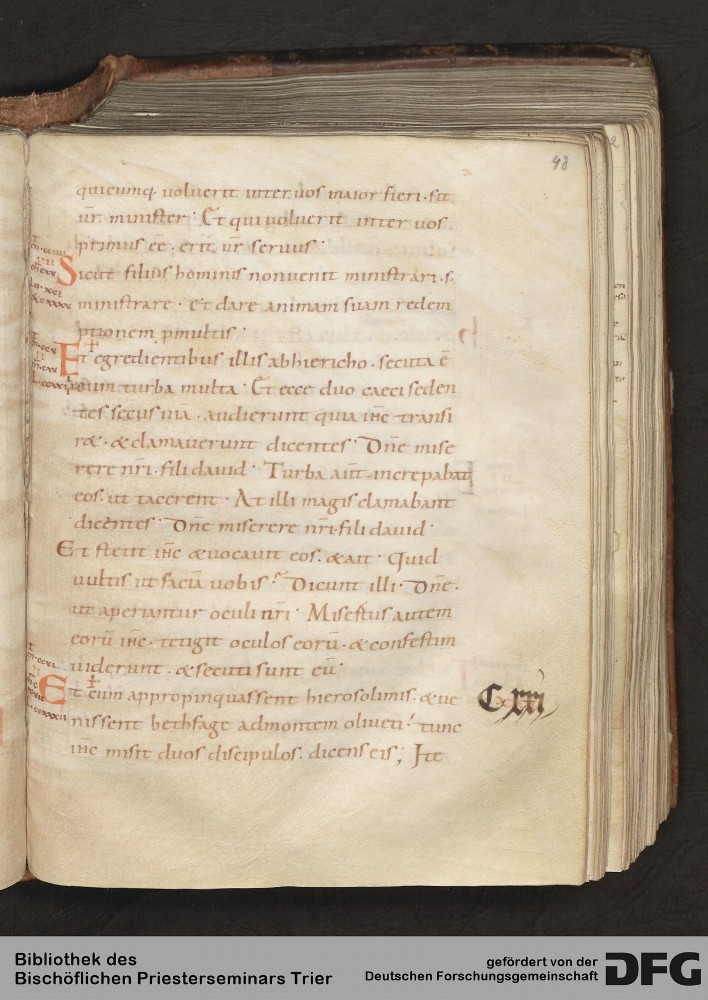 48
quicumq· voluerit inter vos maior fieri· sit
ur̄ minister· Et qui voluerit inter vos
primus eē· erit ur̄ servus·
Sicut filius hominis non venit ministrari· s·
ministrare· et dare animam suam redem
ptionem p multis·
Et egredientibus illis ab hiericho· secuta ē
eum turba multa· Et ecce duo caeci seden
tes secus via· audierunt quia ihc̄ transi
ret· & clamaverunt dicentes· Dn̄e mise
rere nr̄i· fili david· Turba aut̄ increpabat
eos· ut tacerent· At illi magis clamabant
dicentes· Dn̄e miserere nr̄i· fili david·
Et stetit ihc̄ & vocavit eos· & ait· Quid
vultis ut faciā vobis? Dicunt illi· Dn̄e·
ut aperiantur oculi nr̄i· Misertus autem
eorū ihc̄· tetigit oculos eorū· & confestim
viderunt· & secuti sunt eū·
Et cum appropinquassent hierosolimis· & ve
nissent bethfage ad montem oliveti· tunc
ihc̄ misit duos discipulos· dicens eis; Ite
Cxxi
Bibliothek des
Bischöflichen Priesterseminars Trier
gefördert von der
Deutschen Forschungsgemeinschaft
DFG